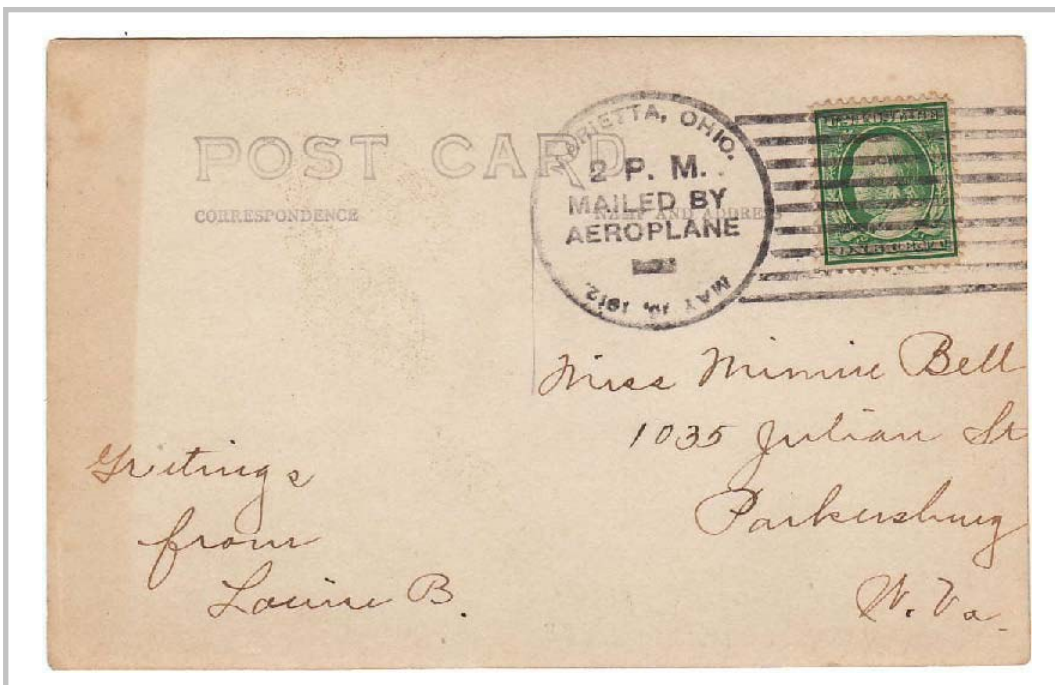 POST CARD
CORRESPONDENCE
NAME AND ADDRESS
MARIETTA, OHIO.
2 P. M.
MAILED BY
AEROPLANE
MAY 1912.
Miss Minnie Bell
1035 Julian St
Parkersburg
W. Va.
Greetings
from
Louise B.